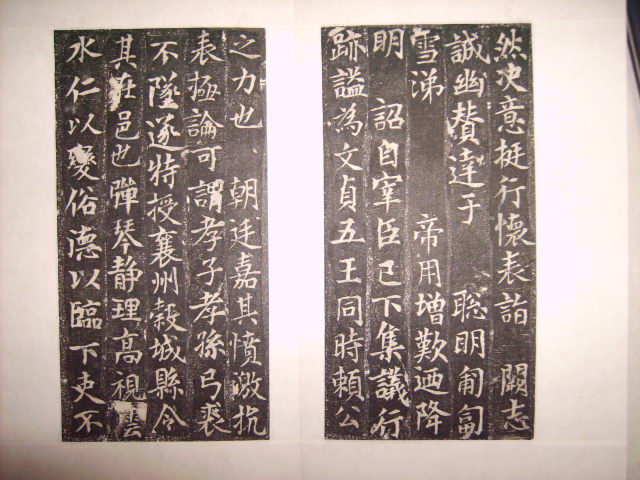 然决意挺行懷表詣 闕志
誠幽贊達于 聪明匍匐
雪涕 帝用增歎迺降
明 詔自宰臣已下集議行
跡謚為文貞五王同時頼公
之力也 朝廷嘉其憤激抗
表極論可謂孝子孝孫弓裘
不墜遂特授襄州穀城縣令
其在邑也彈琴静理高視
水仁以變俗德以臨下吏不